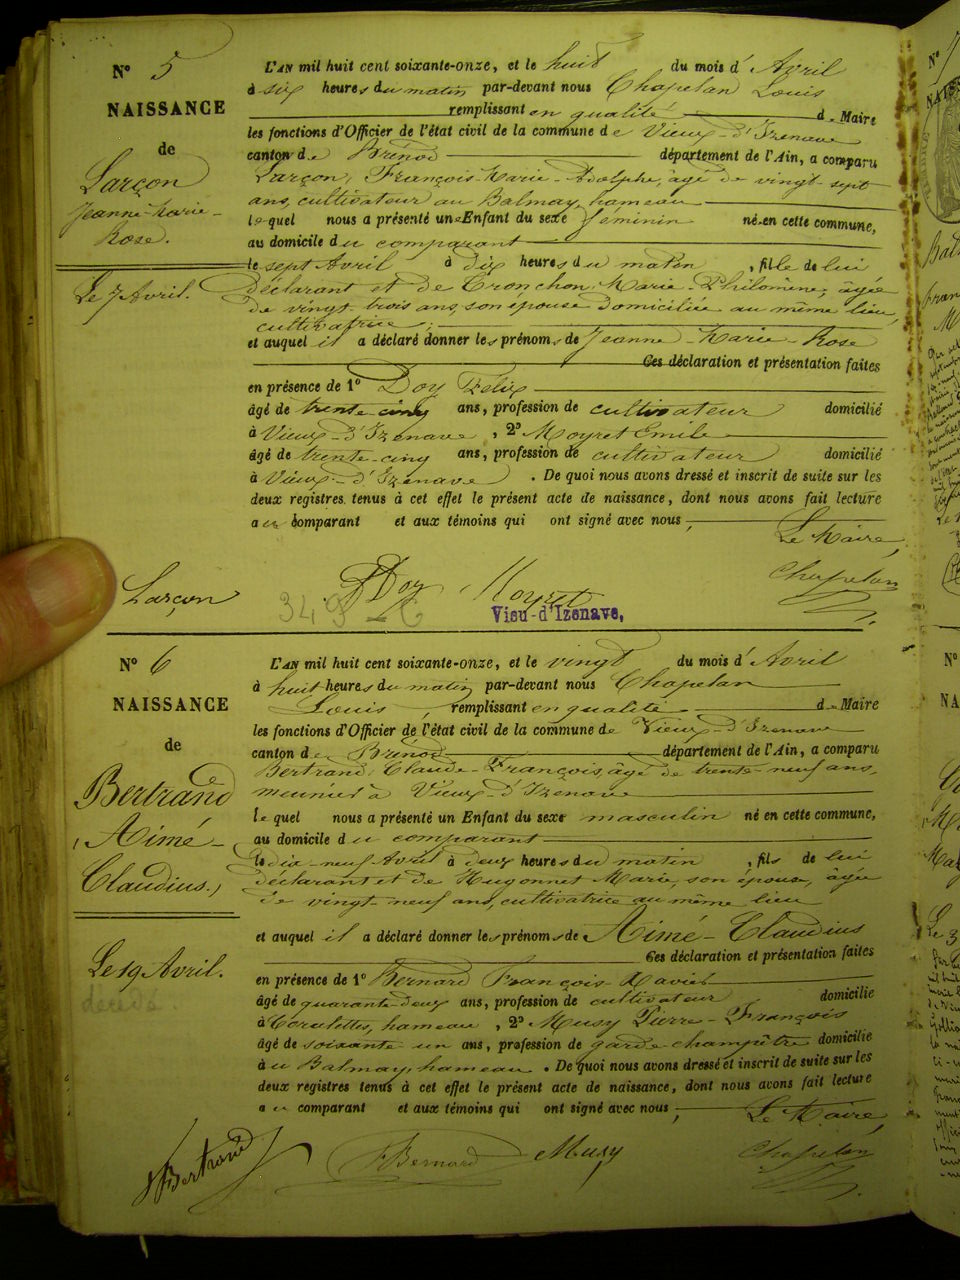 N° 5
NAISSANCE
de
Larçon
Jeanne-Marie-
Rose.
Le 7 Avril.
L'AN mil huit cent soixante-onze, et le huit du mois d' Avril
à six heures du matin par-devant nous Chapelan Louis
remplissant en qualité de Maire
les fonctions d'Officier de l'état civil de la commune de Vieux-d'Izenave
canton de Brénod département de l'Ain, a comparu
Larçon, François-Marie-Adolphe, âgé de vingt-sept
ans, cultivateur au Balmay, hameau
lequel nous a présenté un Enfant du sexe féminin né-en cette commune,
au domicile du comparant
le sept Avril à dix heures du matin, fille de lui
déclarant et de Tronchon Marie-Philomène, âgée
de vingt-trois ans, son épouse domiciliée au même lieu,
cultivatrice;
et auquel il a déclaré donner les prénoms de Jeanne-Marie-Rose
Ces déclaration et présentation faites
en présence de 1° Doy Félix
âgé de trente-cinq ans, profession de cultivateur domicilié
à Vieux-d'Izenave, 2° Moyret Emile
âgé de trente-cinq ans, profession de cultivateur domicilié
à Vieux-d'Izenave. De quoi nous avons dressé et inscrit de suite sur les
deux registres tenus à cet effet le présent acte de naissance, dont nous avons fait lecture
au comparant et aux témoins qui ont signé avec nous,
Le Maire,
Larçon FDoy Moyret Chapelan
349
Vieu-d'Izenave,
N° 6
NAISSANCE
de
Bertrand
Aimé-
Claudius.
Le 19 Avril.
décédé
L'AN mil huit cent soixante-onze, et le vingt du mois d' Avril
à huit heures du matin par-devant nous Chapelan
Louis, remplissant en qualité de Maire
les fonctions d'Officier de l'état civil de la commune de Vieux-d'Izenave
canton de Brénod département de l'Ain, a comparu
Bertrand Claude-François, âgé de trente-neuf ans,
meunier à Vieux-d'Izenave
lequel nous a présenté un Enfant du sexe masculin né en cette commune,
au domicile du comparant
le dix-neuf Avril à deux heures du matin, fils de lui
déclarant et de Hugonnet Marie, son épouse, âgée
de vingt-neuf ans, cultivatrice au même lieu
et auquel il a déclaré donner les prénoms de Aimé-Claudius
Ces déclaration et présentation faites
en présence de 1° Bernard François-Xavier
âgé de quarante-deux ans, profession de cultivateur domicilié
à Corlettes, hameau, 2° Musy Pierre-François
âgé de soixante un ans, profession de garde champêtre domicilié
au Balmay, hameau. De quoi nous avons dressé et inscrit de suite sur les
deux registres tenus à cet effet le présent acte de naissance, dont nous avons fait lecture
au comparant et aux témoins qui ont signé avec nous;
Le Maire,
Bertrand FBernard Musy Chapelan